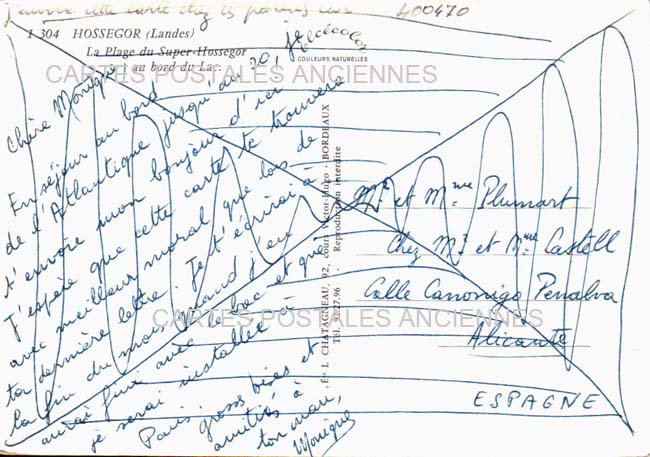 J'envoie cette carte chez tes parents car
400470
1 304 HOSSEGOR (Landes)
La Plage du Super-Hossegor
au bord du Lac.
elcécolor
COULEURS NATURELLES
CARTES POSTALES ANCIENNES
Chère Monique
En séjour au bord
de l'Atlantique jusqu'au 20, je
t'envoie mon bonjour d'ici
J'espère que cette carte te trouvera
avec meilleur moral que lors de
ta dernière lettre. Je t'écrirai à
la fin du mois quand j'en
aurai finie avec le bac et que
je serai installée à
Paris. grosses bises et
amitiés à
ton mari,
Monique
Ed. L. CHATAGNEAU, 92, cours Victor-Hugo - BORDEAUX
Tél. 92.27.96 - Reproduction interdite
Mr et Mme Plumart
Chez Mr et Mme Castell
Calle Canonigo Penalva
Alicante
ESPAGNE
CARTES POSTALES ANCIENNES